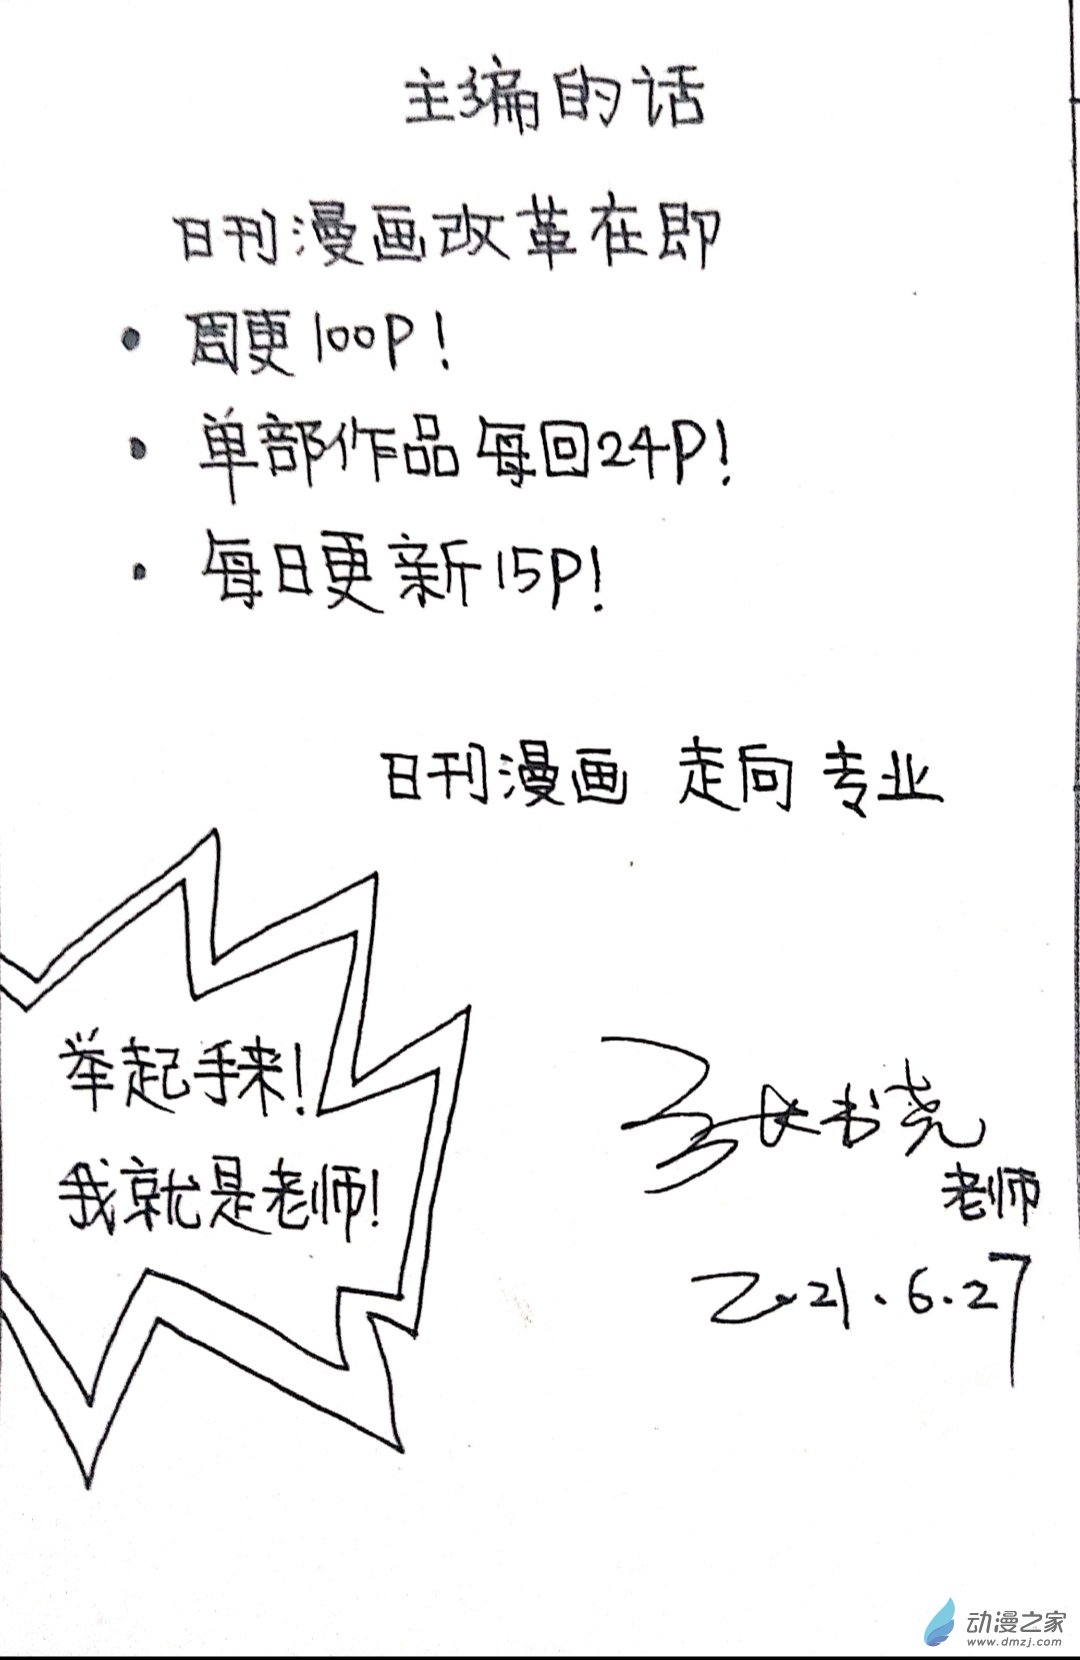 主编的话
日刊漫画改革在即
• 周更100P!
• 单部作品每回24P!
• 每日更新15P!
日刊漫画 走向专业
举起手来!
我就是老师!
张书尧
老师
2021.6.27
动漫之家
www.dmzj.com